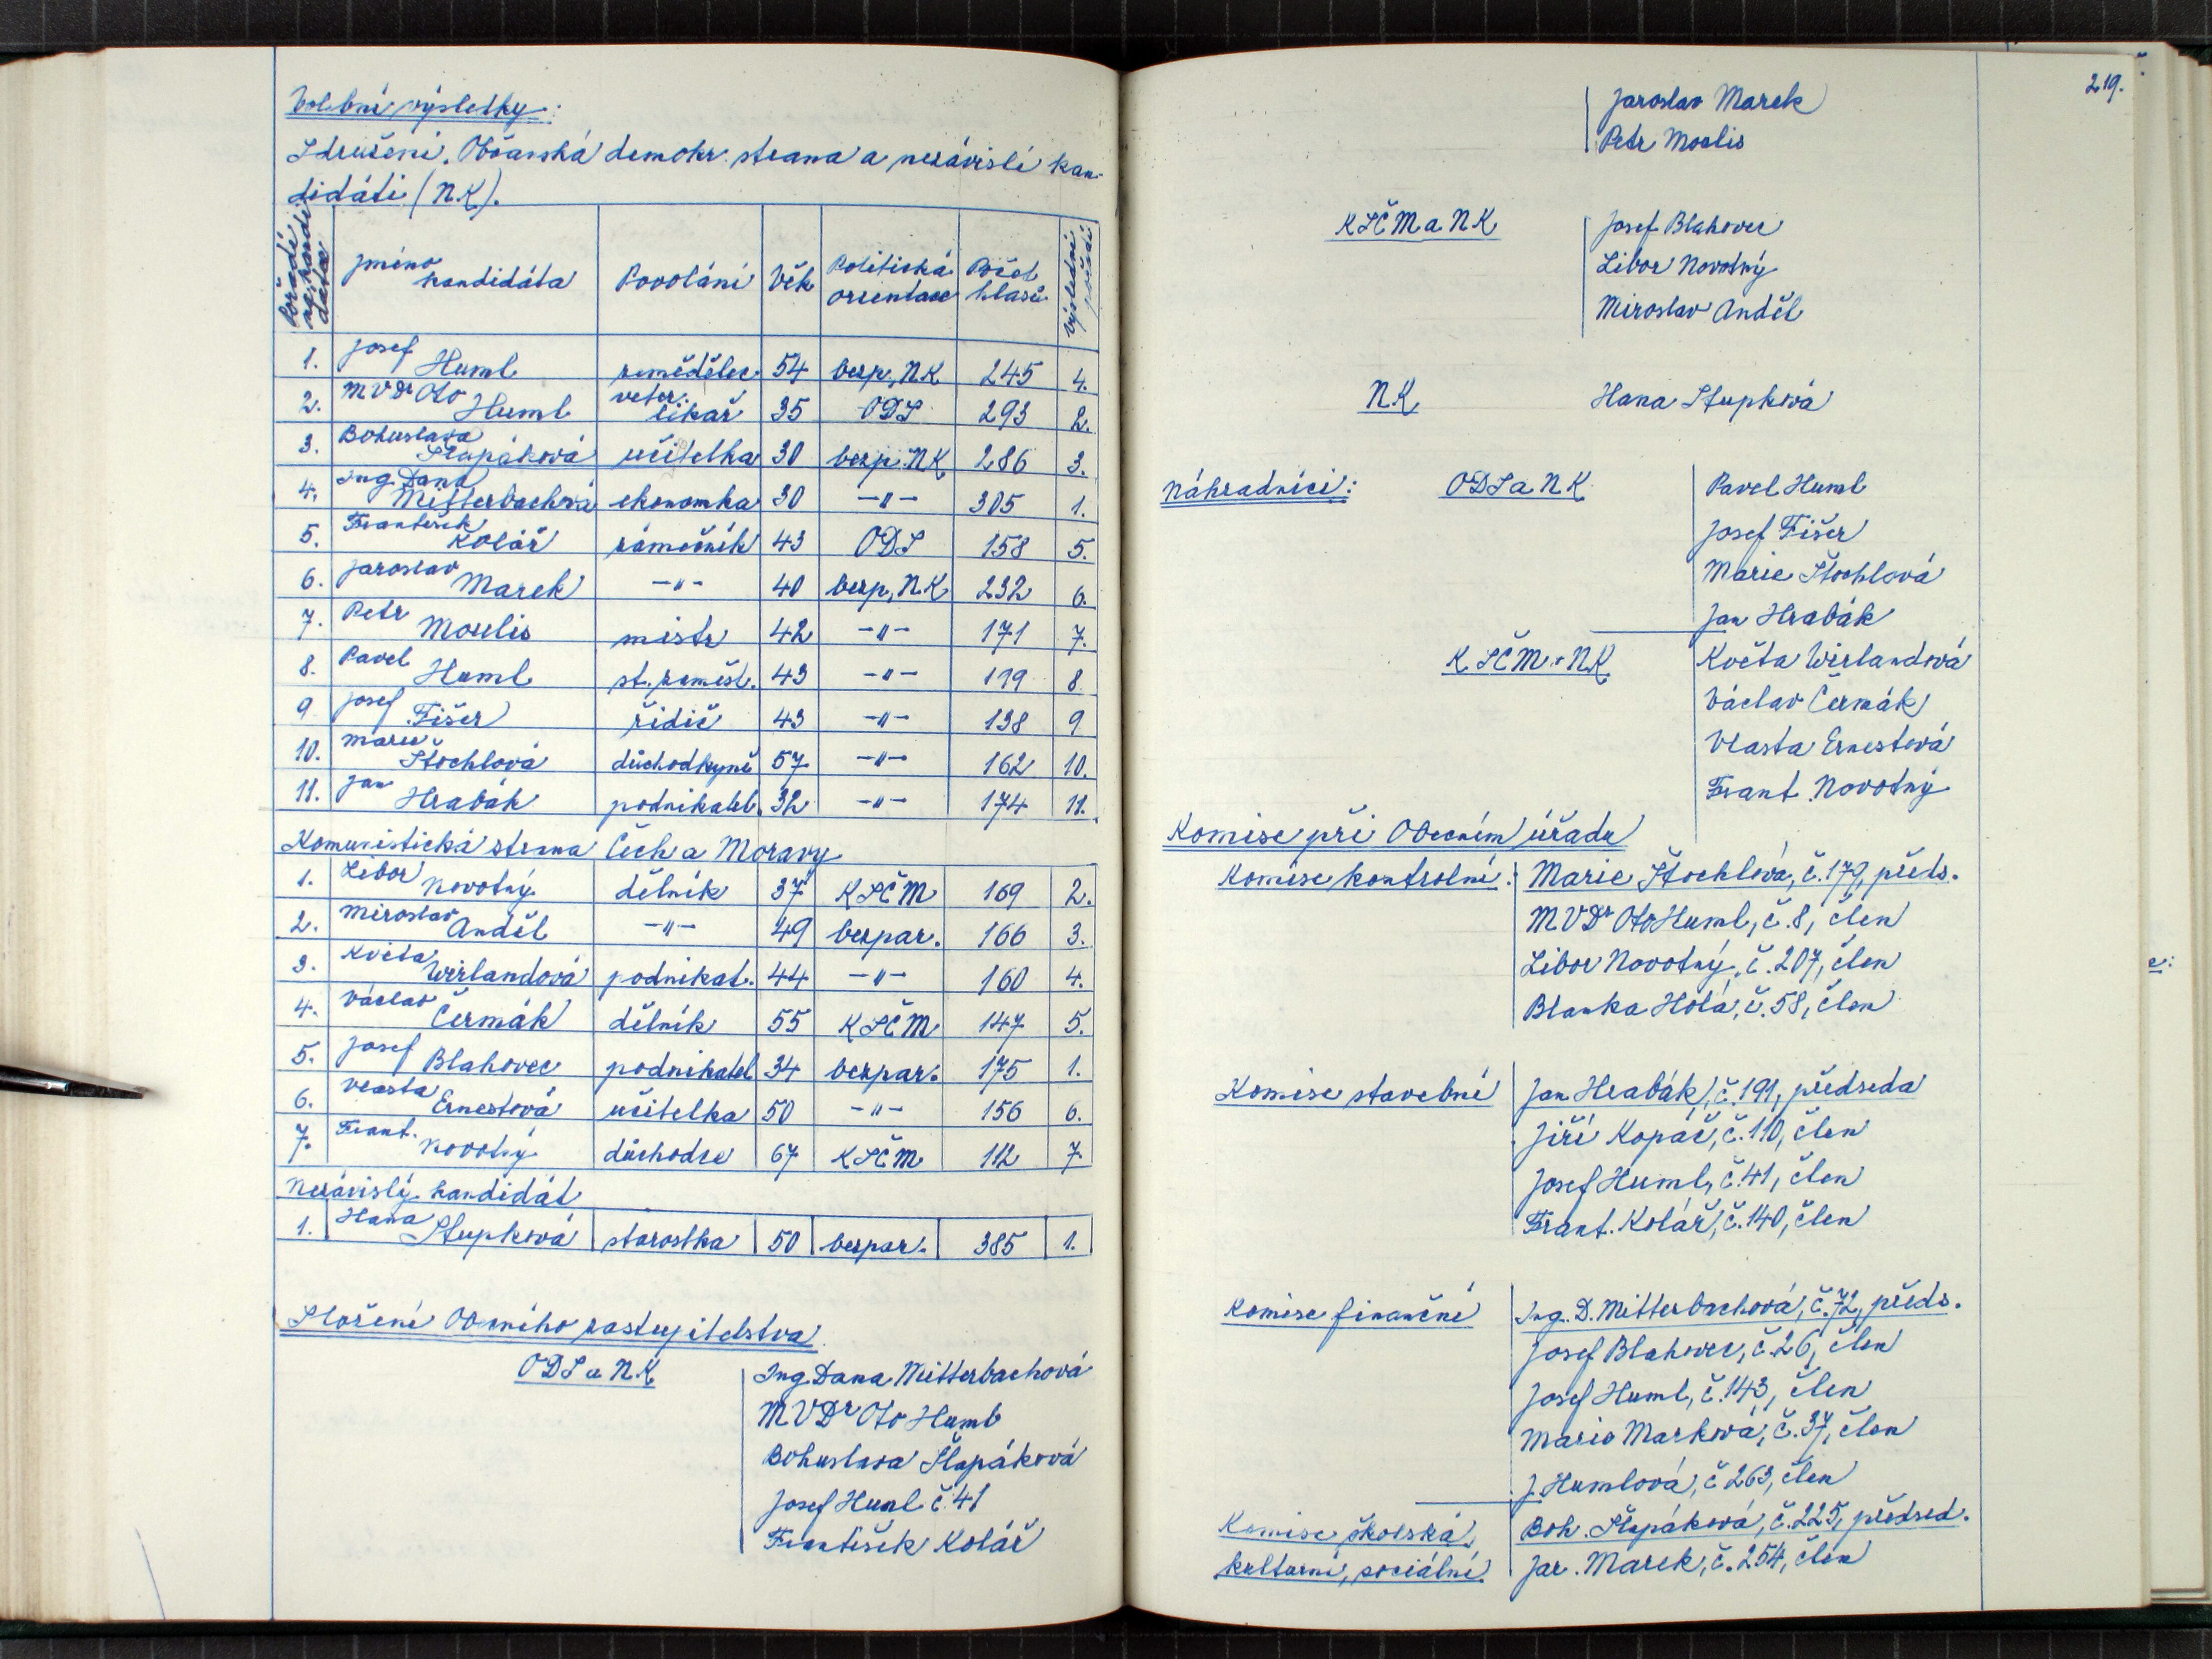 Volební výsledky:
Sdružení, Občanská demokr. strana a nezávislí kan-
didáti (NK).
jméno kandidáta | Povolání | Věk | Politická orientace | Počet hlasů | Výslední pořadí
1. Josef Huml | zemědělec | 54 | bezp, NK | 245 | 4.
2. MVDr Oto Huml | veter. lékař | 35 | ODS | 293 | 2.
3. Bohuslava Šlapáková | učitelka | 30 | bezp. NK | 286 | 3.
4. Ing Dana Mitterbachová | ekonomka | 30 | -"- | 305 | 1.
5. František Kolář | zámečník | 43 | ODS | 158 | 5.
6. Jaroslav Marek | -"- | 40 | bezp, NK | 232 | 6.
7. Petr Moulis | mistr | 42 | -"- | 171 | 7.
8. Pavel Huml | st. zaměst. | 43 | -"- | 199 | 8
9 Josef Fišer | řidič | 43 | -"- | 138 | 9
10. Marie Štochlová | důchodkyně | 57 | -"- | 162 | 10.
11. Jan Hrabák | podnikatel. | 32 | -"- | 174 | 11.
Komunistická strana Čech a Moravy
1. Libor Novotný | dělník | 37 | KSČM | 169 | 2.
2. Miroslav Anděl | -"- | 49 | bezpar. | 166 | 3.
3. Květa Wirlandová | podnikat. | 44 | -"- | 160 | 4.
4. Václav Čermák | dělník | 55 | KSČM | 147 | 5.
5. Josef Blahovec | podnikatel | 34 | bezpar. | 175 | 1.
6. Vlasta Ernestová | učitelka | 50 | -"- | 156 | 6.
7. Frant. Novotný | důchodce | 67 | KSČM | 112 | 7.
Nezávislý kandidát
1. Hana Stupková | starostka | 50 | bezpar. | 385 | 1.
Složení Obecního zastupitelstva
ODS a NK
Ing Dana Mitterbachová
MVDr Oto Huml
Bohuslava Šlapáková
Josef Huml č. 41
František Kolář
219.
Jaroslav Marek
Petr Moulis
KSČM a NK
Josef Blahovec
Libor Novotný
Miroslav Anděl
NK Hana Stupková
Náhradníci: ODS a NK
Pavel Huml
Josef Fišer
Marie Štochlová
Jan Hrabák
KSČM + NK Květa Wirlandová
Václav Čermák
Vlasta Ernestová
Frant. Novotný
Komise při Obecním úřadu
Komise kontrolní: Marie Štochlová, č. 179, předs.
MVDr Oto Huml, č. 8, člen
Libor Novotný, č. 207, člen
Blanka Holá, č. 58, člen
Komise stavební Jan Hrabák, č. 191, předseda
Jiří Kopáč, č. 110, člen
Josef Huml, č. 41, člen
Frant. Kolář, č. 140, člen
Komise finanční Ing. D. Mitterbachová, č. 72, předs.
Josef Blahovec, č. 26, člen
Josef Huml, č. 143, člen
Marie Marková, č. 37, člen
J. Humlová, č 263, člen
Komise školská, Boh. Šlapáková, č. 225, předsed.
kulturní, sociální Jar. Marek, č. 254, člen